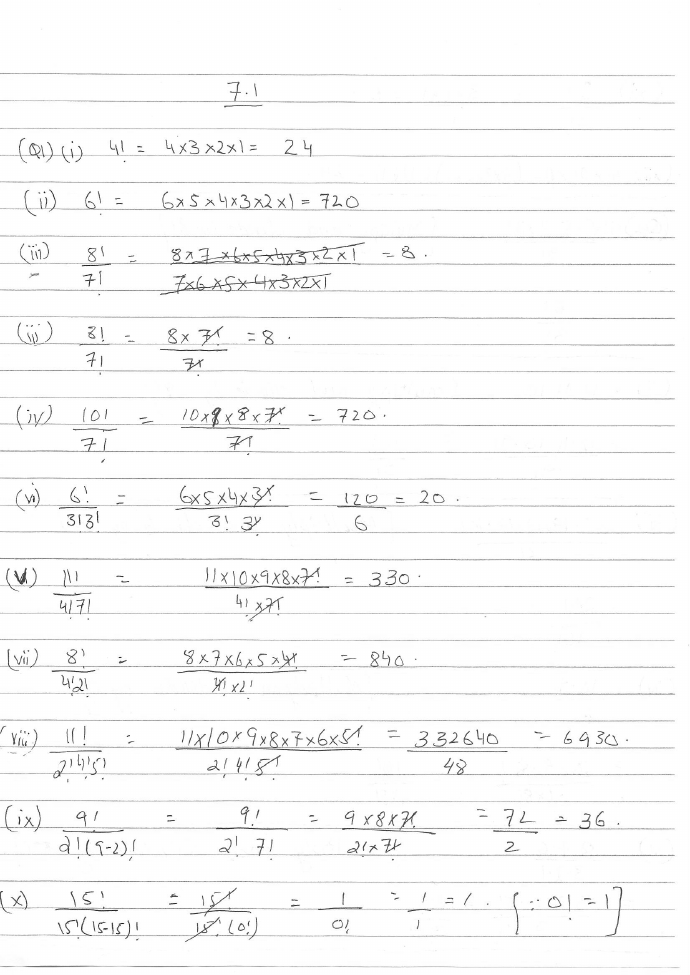 7.1
(Q1) (i) 4! = 4×3×2×1 = 24
(ii) 6! = 6×5×4×3×2×1 = 720
(iii) 8!/7! = 8×7×6×5×4×3×2×1 / 7×6×5×4×3×2×1 = 8.
(iii) 8!/7! = 8×7!/7! = 8.
(iv) 10!/7! = 10×9×8×7!/7! = 720.
(vi) 6!/3!3! = 6×5×4×3!/3! 3! = 120/6 = 20.
(v) 11!/4!7! = 11×10×9×8×7!/4!×7! = 330.
(vii) 8!/4!2! = 8×7×6×5×4!/4!×2! = 840.
(viii) 11!/2!4!5! = 11×10×9×8×7×6×5!/2!4!5! = 332640/48 = 6930.
(ix) 9!/2!(9-2)! = 9!/2! 7! = 9×8×7!/2!×7! = 72/2 = 36.
(x) 15!/15!(15-15)! = 15!/15!(0!) = 1/0! = 1/1 = 1. [∵ 0! = 1]